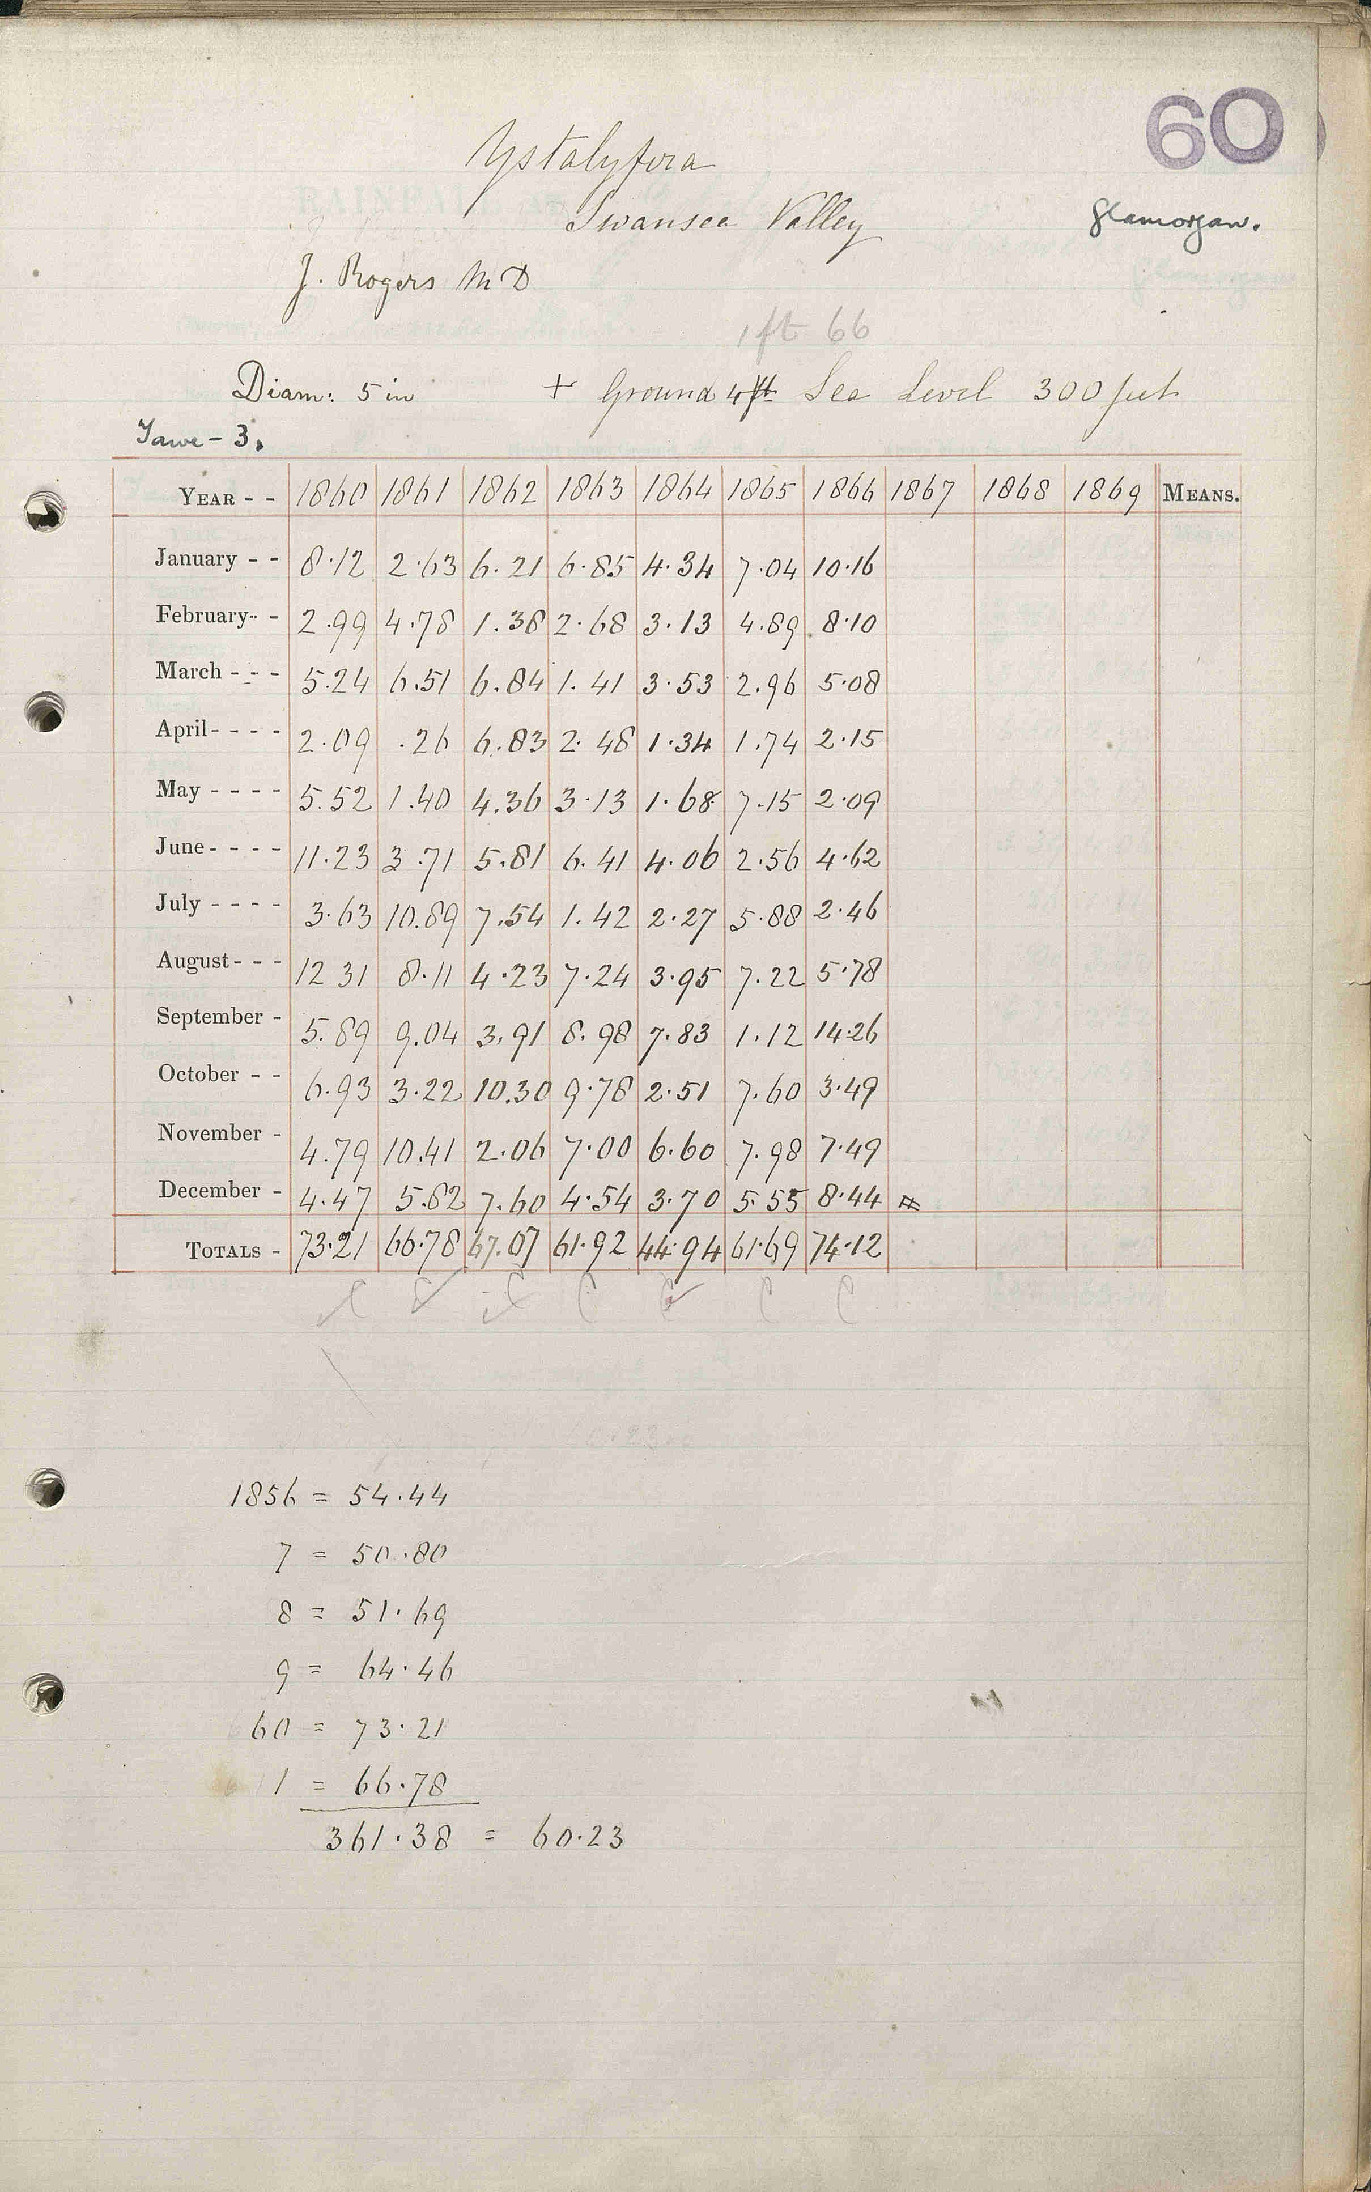 60
Ystalyfera
Swansea Valley
Glamorgan.
J. Rogers M D
1 ft 66
Diam: 5 in + Ground 4 ft Sea Level 300 feet
Tawe - 3.
YEAR - - 1860 1861 1862 1863 1864 1865 1866 1867 1868 1869 MEANS.
January - - 8.12 2.63 6.21 6.85 4.34 7.04 10.16
February - - 2.99 4.78 1.38 2.68 3.13 4.89 8.10
March - - - 5.24 6.51 6.84 1.41 3.53 2.96 5.08
April - - - - 2.09 .26 6.83 2.48 1.34 1.74 2.15
May - - - - 5.52 1.40 4.36 3.13 1.68 7.15 2.09
June - - - - 11.23 3.71 5.81 6.41 4.06 2.56 4.62
July - - - - 3.63 10.89 7.54 1.42 2.27 5.88 2.46
August - - - 12 31 8.11 4.23 7.24 3.95 7.22 5.78
September - 5.89 9.04 3.91 8.98 7.83 1.12 14.26
October - - 6.93 3.22 10.30 9.78 2.51 7.60 3.49
November - 4.79 10.41 2.06 7.00 6.60 7.98 7.49
December - 4.47 5.82 7.60 4.54 3.70 5.55 8.44
TOTALS - 73.21 66.78 67.07 61.92 44.94 61.69 74.12
1856 = 54.44
7 = 50.80
8 = 51.69
9 = 64.46
60 = 73.21
1 = 66.78
361.38 = 60.23